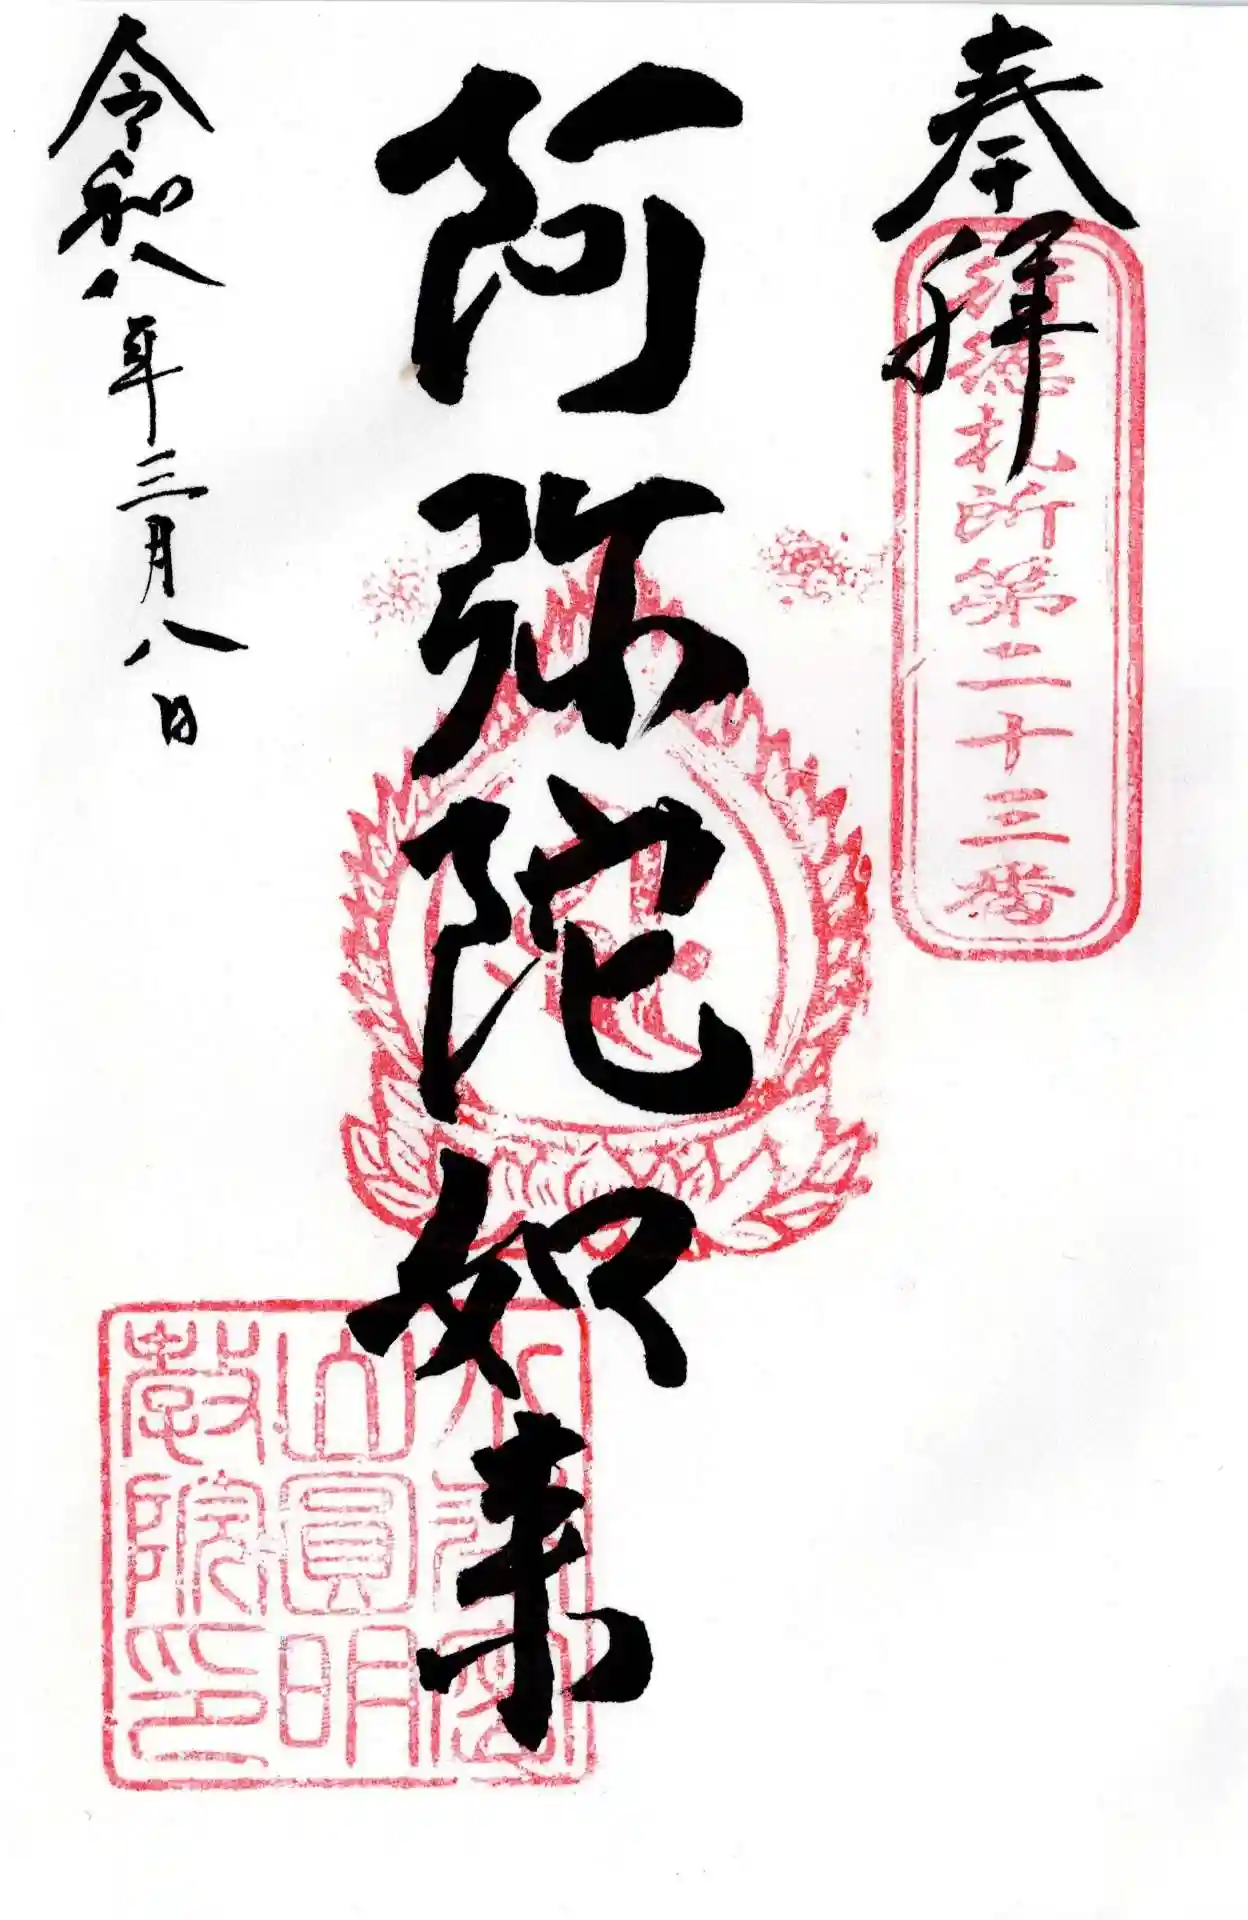 奉拝
行徳札所第二十三番
阿弥陀如来
山圓明
教院印
令和八年三月八日